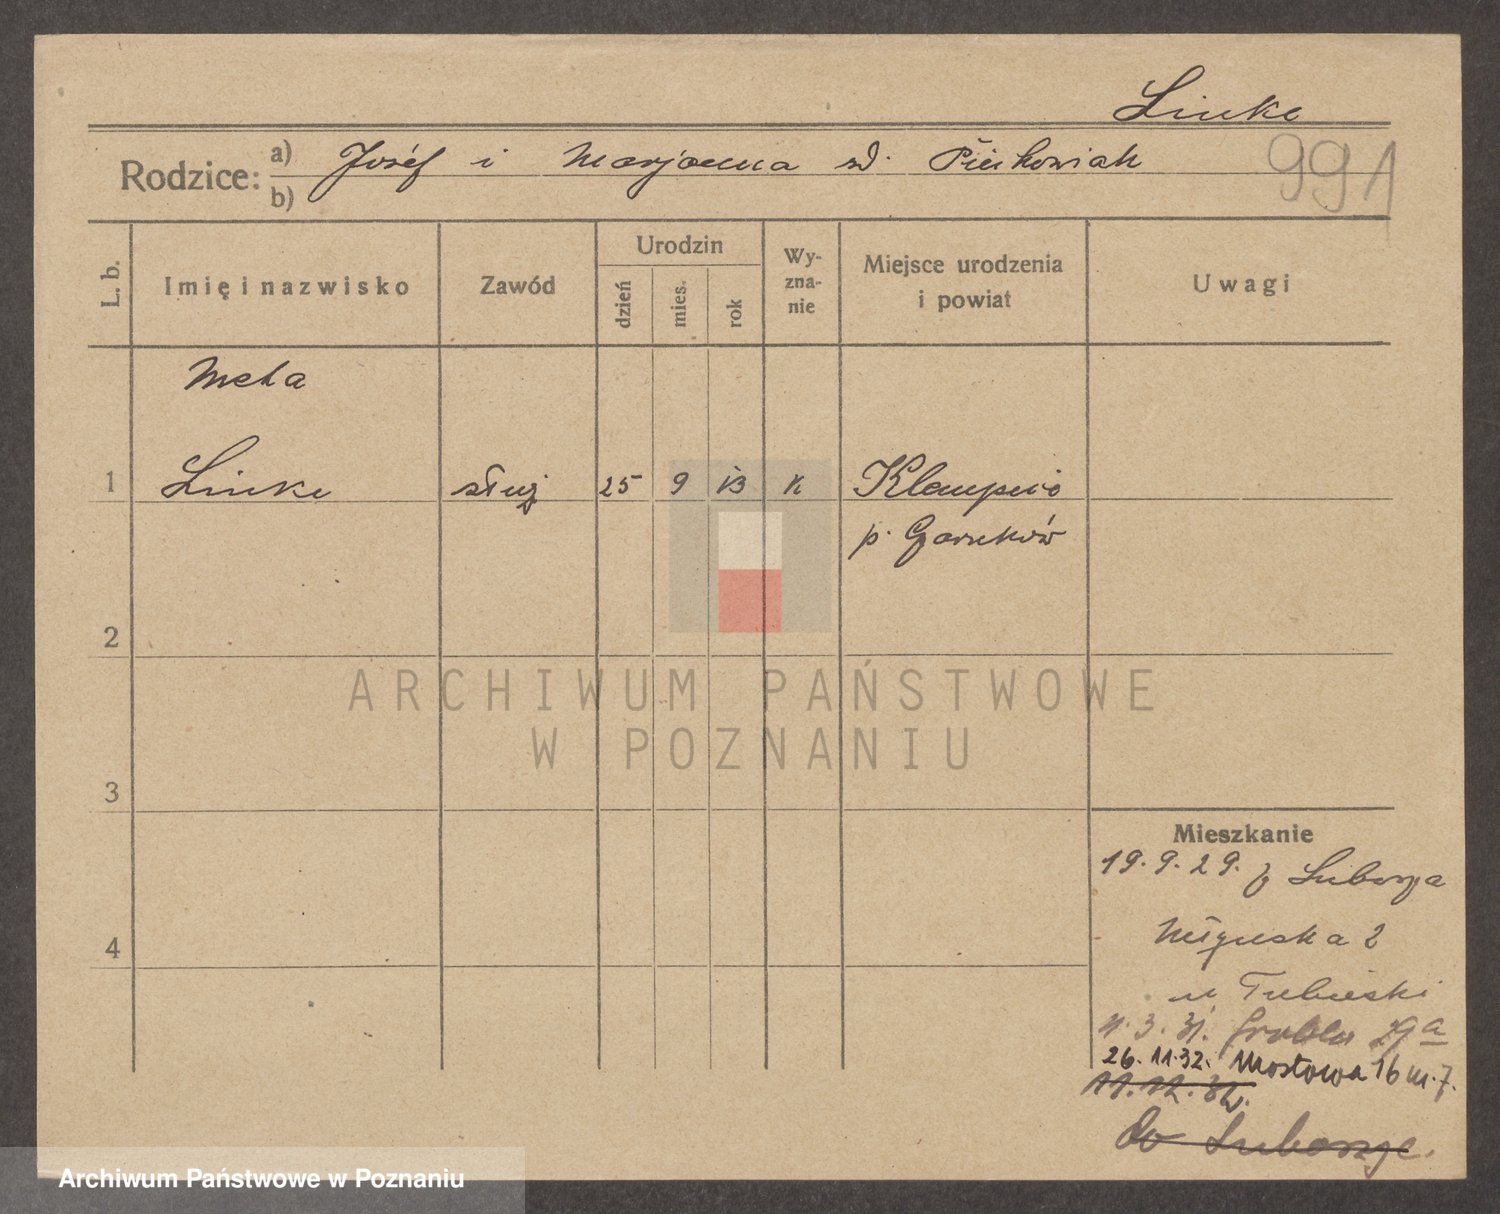 Linke
Rodzice: a) Józef i Marjanna zd. Piechowiak
b)
991
L. b.
Imię i nazwisko
Zawód
Urodzin
dzień
mies.
rok
Wy-
zna-
nie
Miejsce urodzenia
i powiat
Uwagi
Meta
1 Linke służ 25 9 13 k Klempicz
p. Czarnków
2
3
4
ARCHIWUM PAŃSTWOWE
W POZNANIU
Mieszkanie
19.9.29. z Lubasza
Młyńska 2
u
4.3.31. Grobla 29a
26.11.32. Mostowa 16 m. 7.
11.12.32.
do Lubasza.
Archiwum Państwowe w Poznaniu